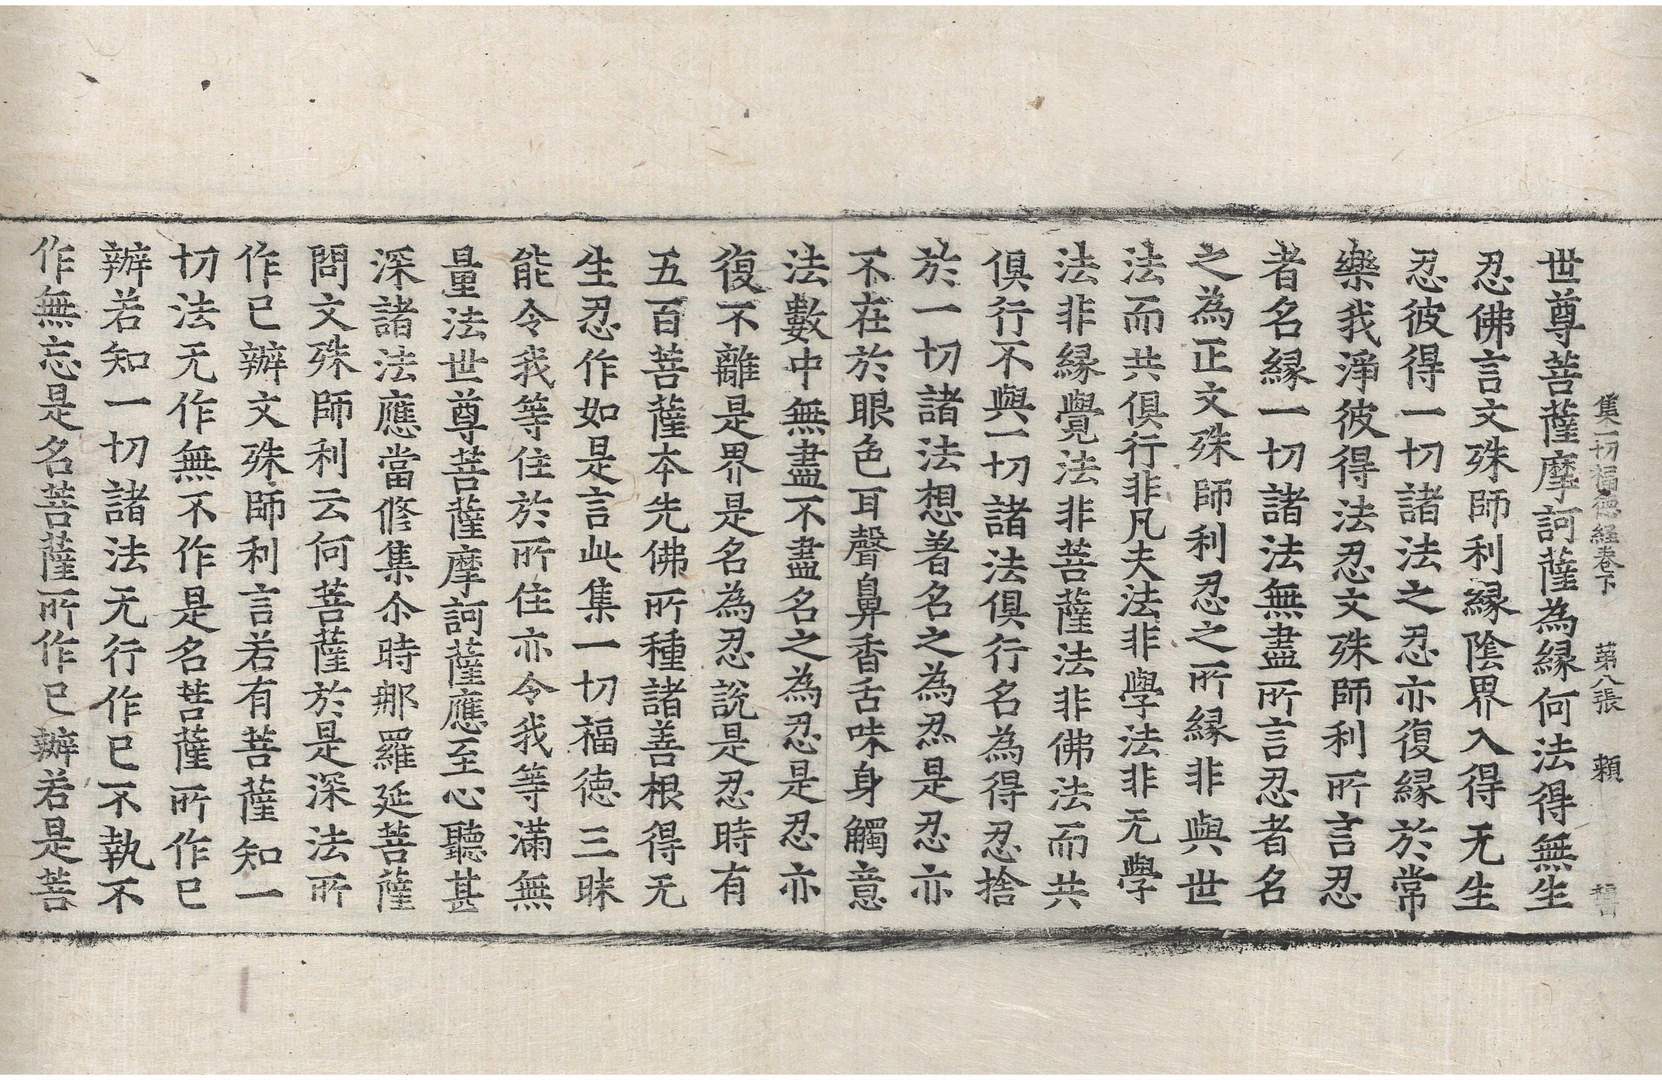 集一切福德経卷下 第八張 頼
世尊菩薩摩訶薩為縁何法得無生
忍佛言文殊師利縁陰界入得无生
忍彼得一切諸法之忍亦復縁於常
樂我淨彼得法忍文殊師利所言忍
者名縁一切諸法無盡所言忍者名
之為正文殊師利忍之所縁非與世
法而共俱行非凡夫法非學法非无學
法非縁覺法非菩薩法非佛法而共
俱行不與一切諸法俱行名為得忍捨
於一切諸法想著名之為忍是忍亦
不在於眼色耳聲鼻香舌味身觸意
法數中無盡不盡名之為忍是忍亦
復不離是界是名為忍說是忍時有
五百菩薩本先佛所種諸善根得无
生忍作如是言此集一切福徳三昧
能令我等住於所住亦令我等滿無
量法世尊菩薩摩訶薩應至心聽甚
深諸法應當修集尒時那羅延菩薩
問文殊師利云何菩薩於是深法所
作已辦文殊師利言若有菩薩知一
切法无作無不作是名菩薩所作已
辦若知一切諸法无行作已不執不
作無忘是名菩薩所作已辦若是菩